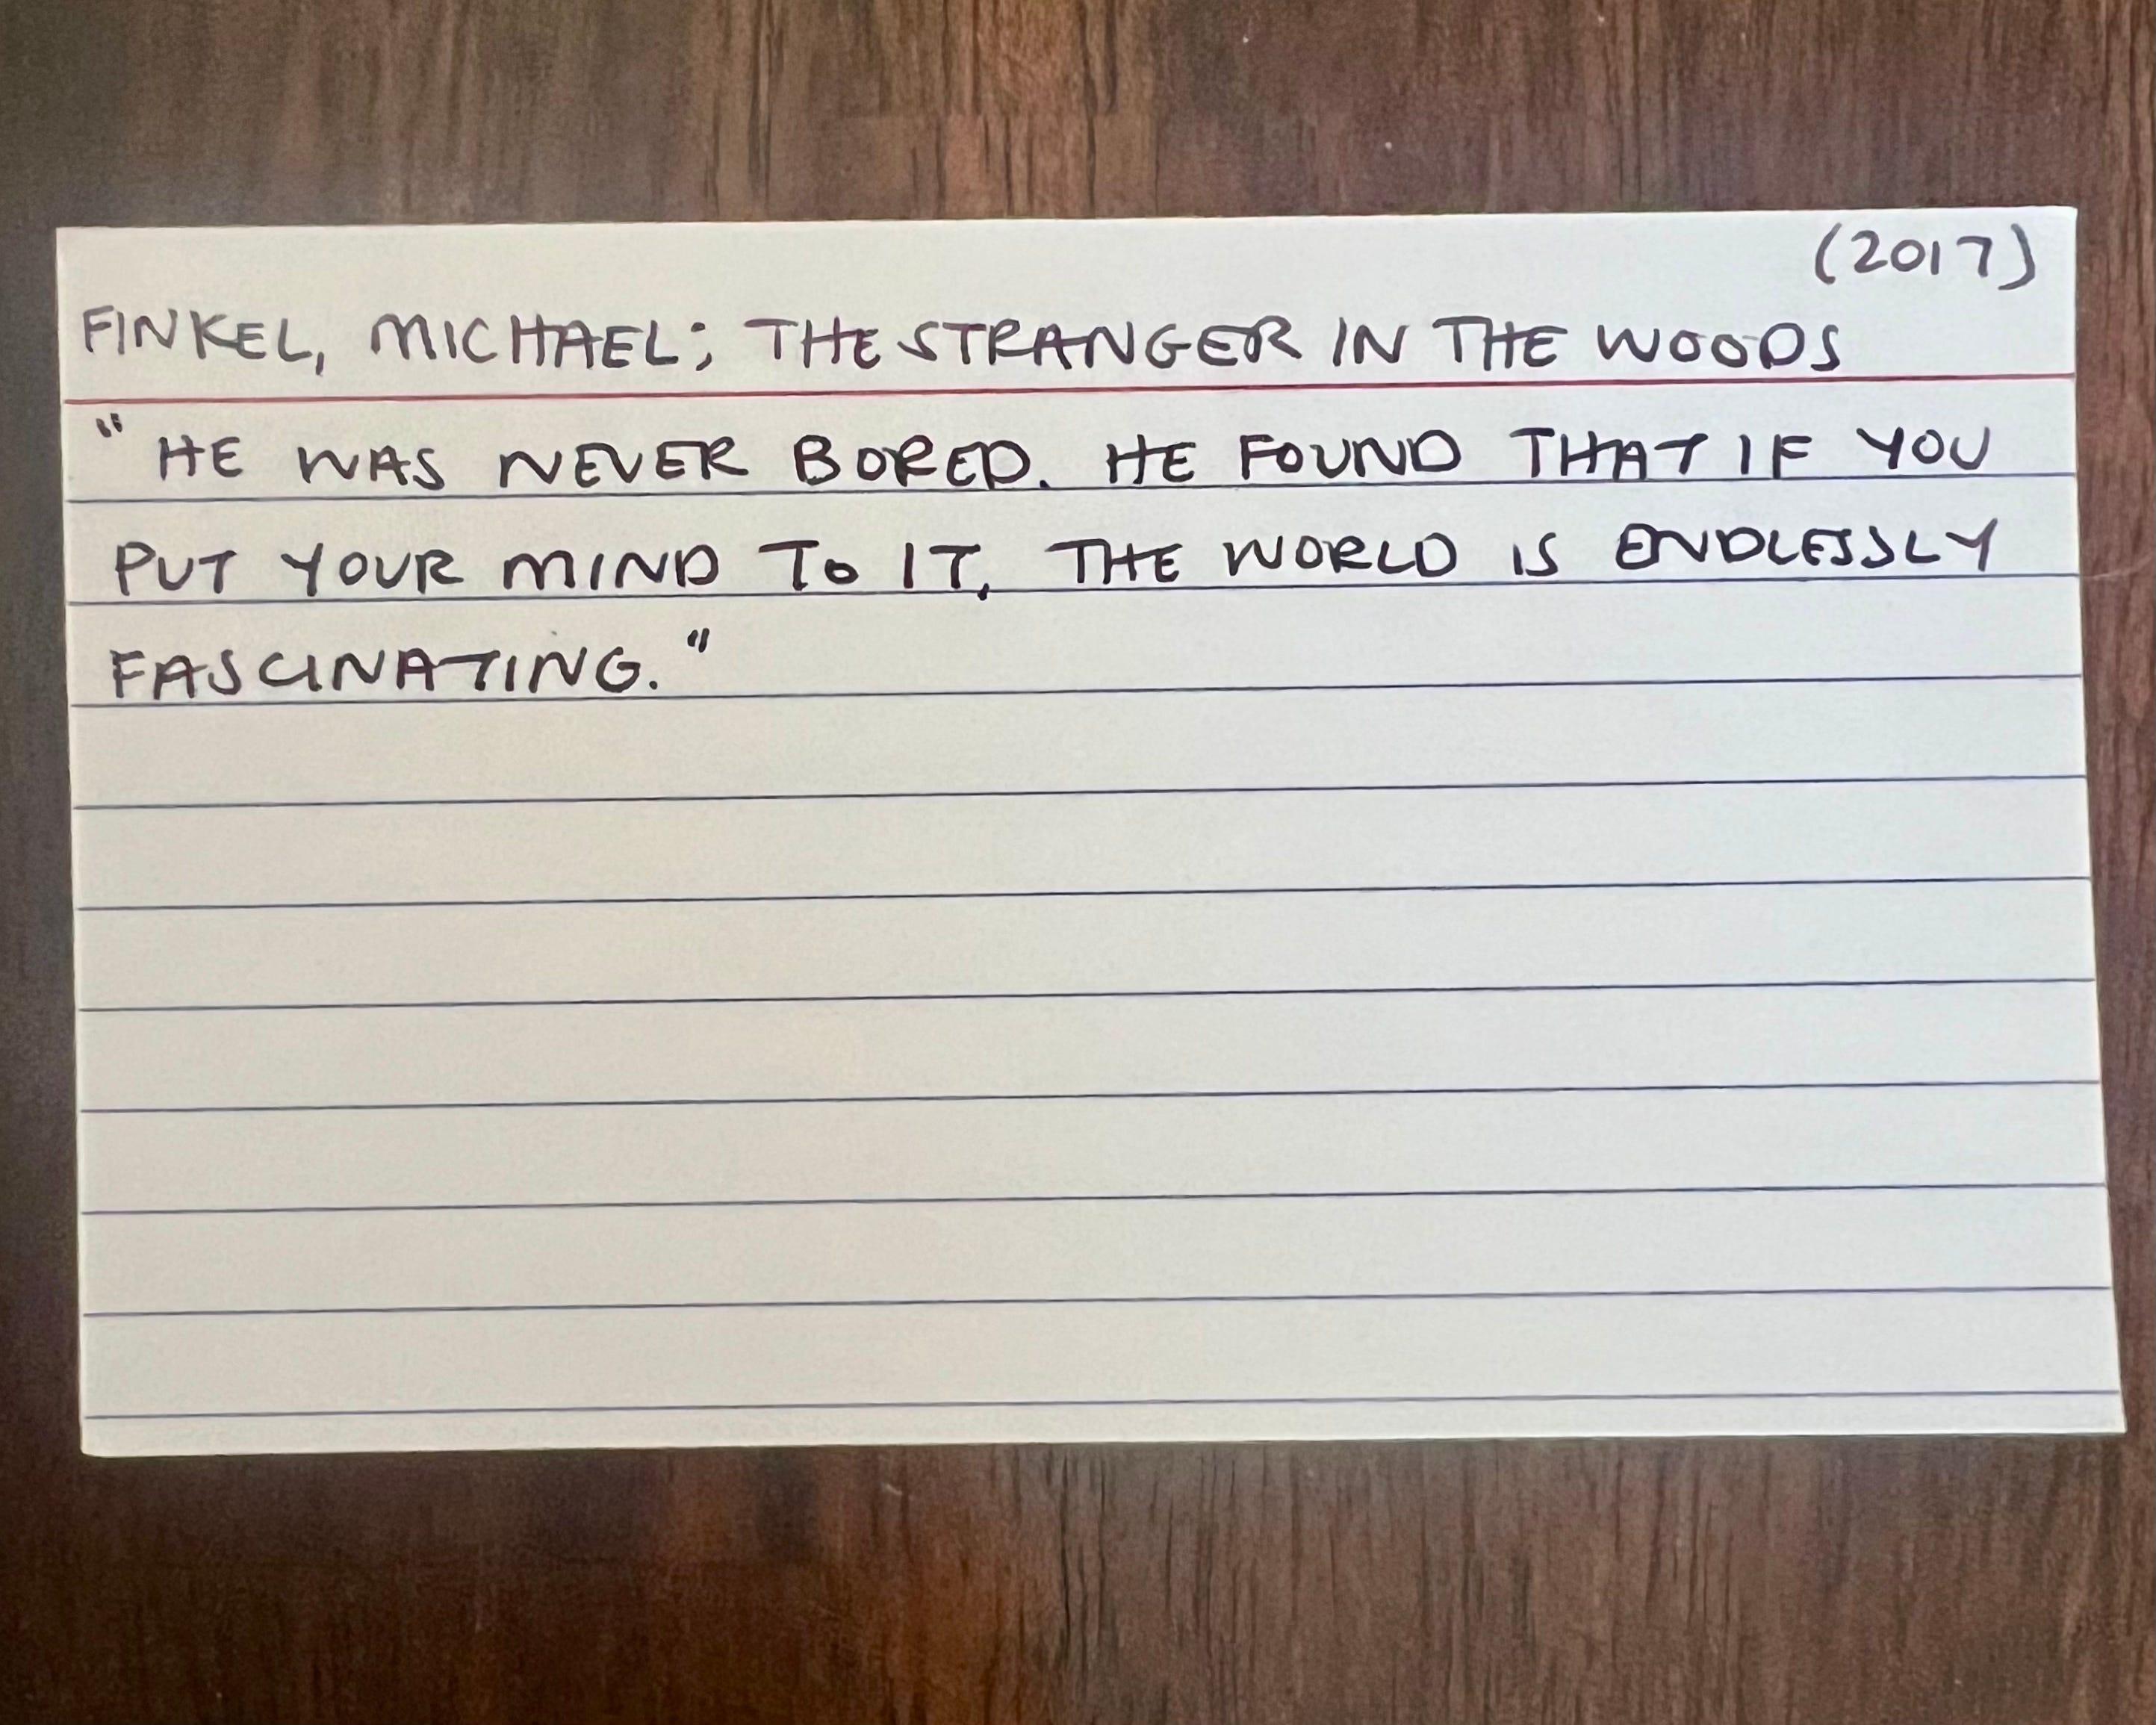 (2017)
FINKEL, MICHAEL; THE STRANGER IN THE WOODS
"HE WAS NEVER BORED. HE FOUND THAT IF YOU
PUT YOUR MIND TO IT, THE WORLD IS ENDLESSLY
FASCINATING."